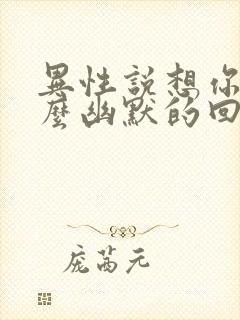 異性説想你
麼幽默的回
庞茜元